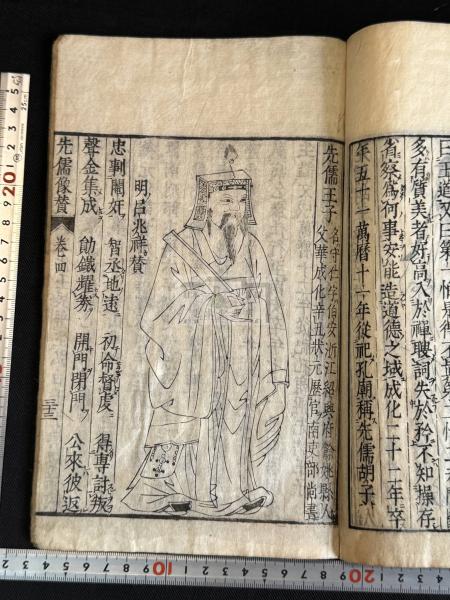 曰王道又曰第一
多有質美者好高入於禪聃詞失於矜不知操存
省察爲何事安能造道德之域成化二十一年卒
年五十一萬曆十二年從祀孔廟稱先儒胡子
先儒王子
名守仁字伯安浙江紹興府餘姚縣人
父華成化辛丑狀元歷官南吏部尚書
明呂兆祥賛
忠剚閹奸 智丞地逺 初命督虔 得專討叛
聲金集成 勛鐵耀券 開門閉門 公來彼返
先儒像賛 卷四 三十三